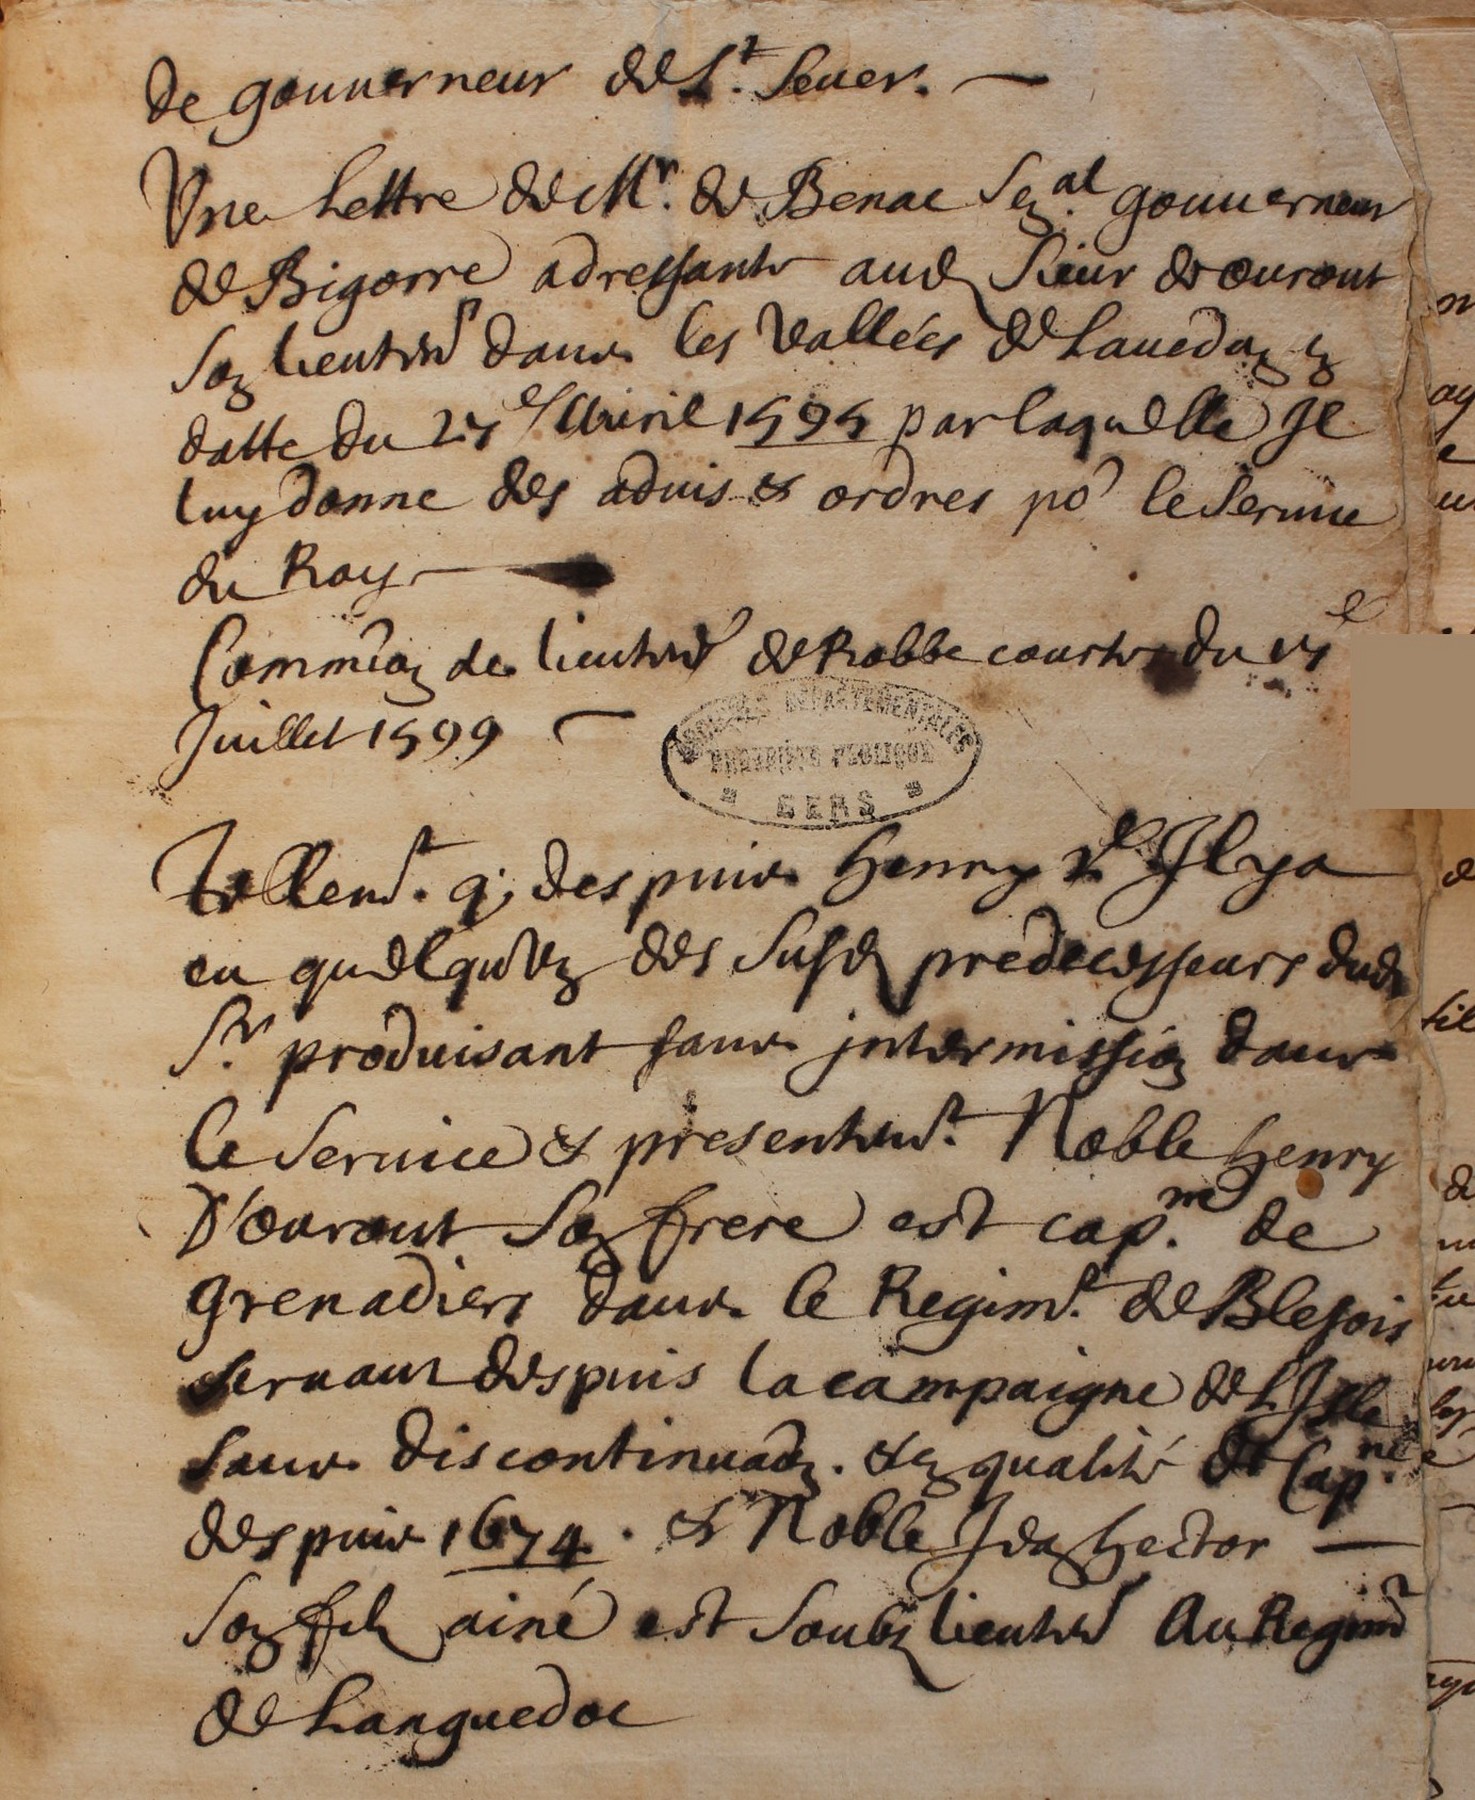 de gouuerneur de S.t Seuer. —
Vne Lettre de Mr. de Benac Sen.al gouuerneur
de Bigorre adressante aud Sieur de ouront
son lieutent dans les Vallées de Lauedan en
datte du 27e Auril 1595 par laquelle Jl
luy donne des aduis & ordres por le seruice
du Roy —
Comm̃ion de lieutent de Robbe courte du
Juillet 1599 —
ARCHIVES DEPARTEMENTALES
PROPRIÉTÉ PUBLIQUE
GERS
Tellemt. q; despuis henry Jl ya
eu quelqu'vn des susd predecesseurs dud
Sr. produisant sans jntermission dans
le seruice & presentemt. Noble henry
D'ouront son frere est cap.ne de
grenadiers dans le Regimt. de Blesois
seruant despuis la campaigne de L'Jsle
sans discontinuaon. & en qualité de Cap.ne
despuis 1674. & Noble Jean hector —
son fils ainé est soubz lieutent Au Regimt
de Languedoc